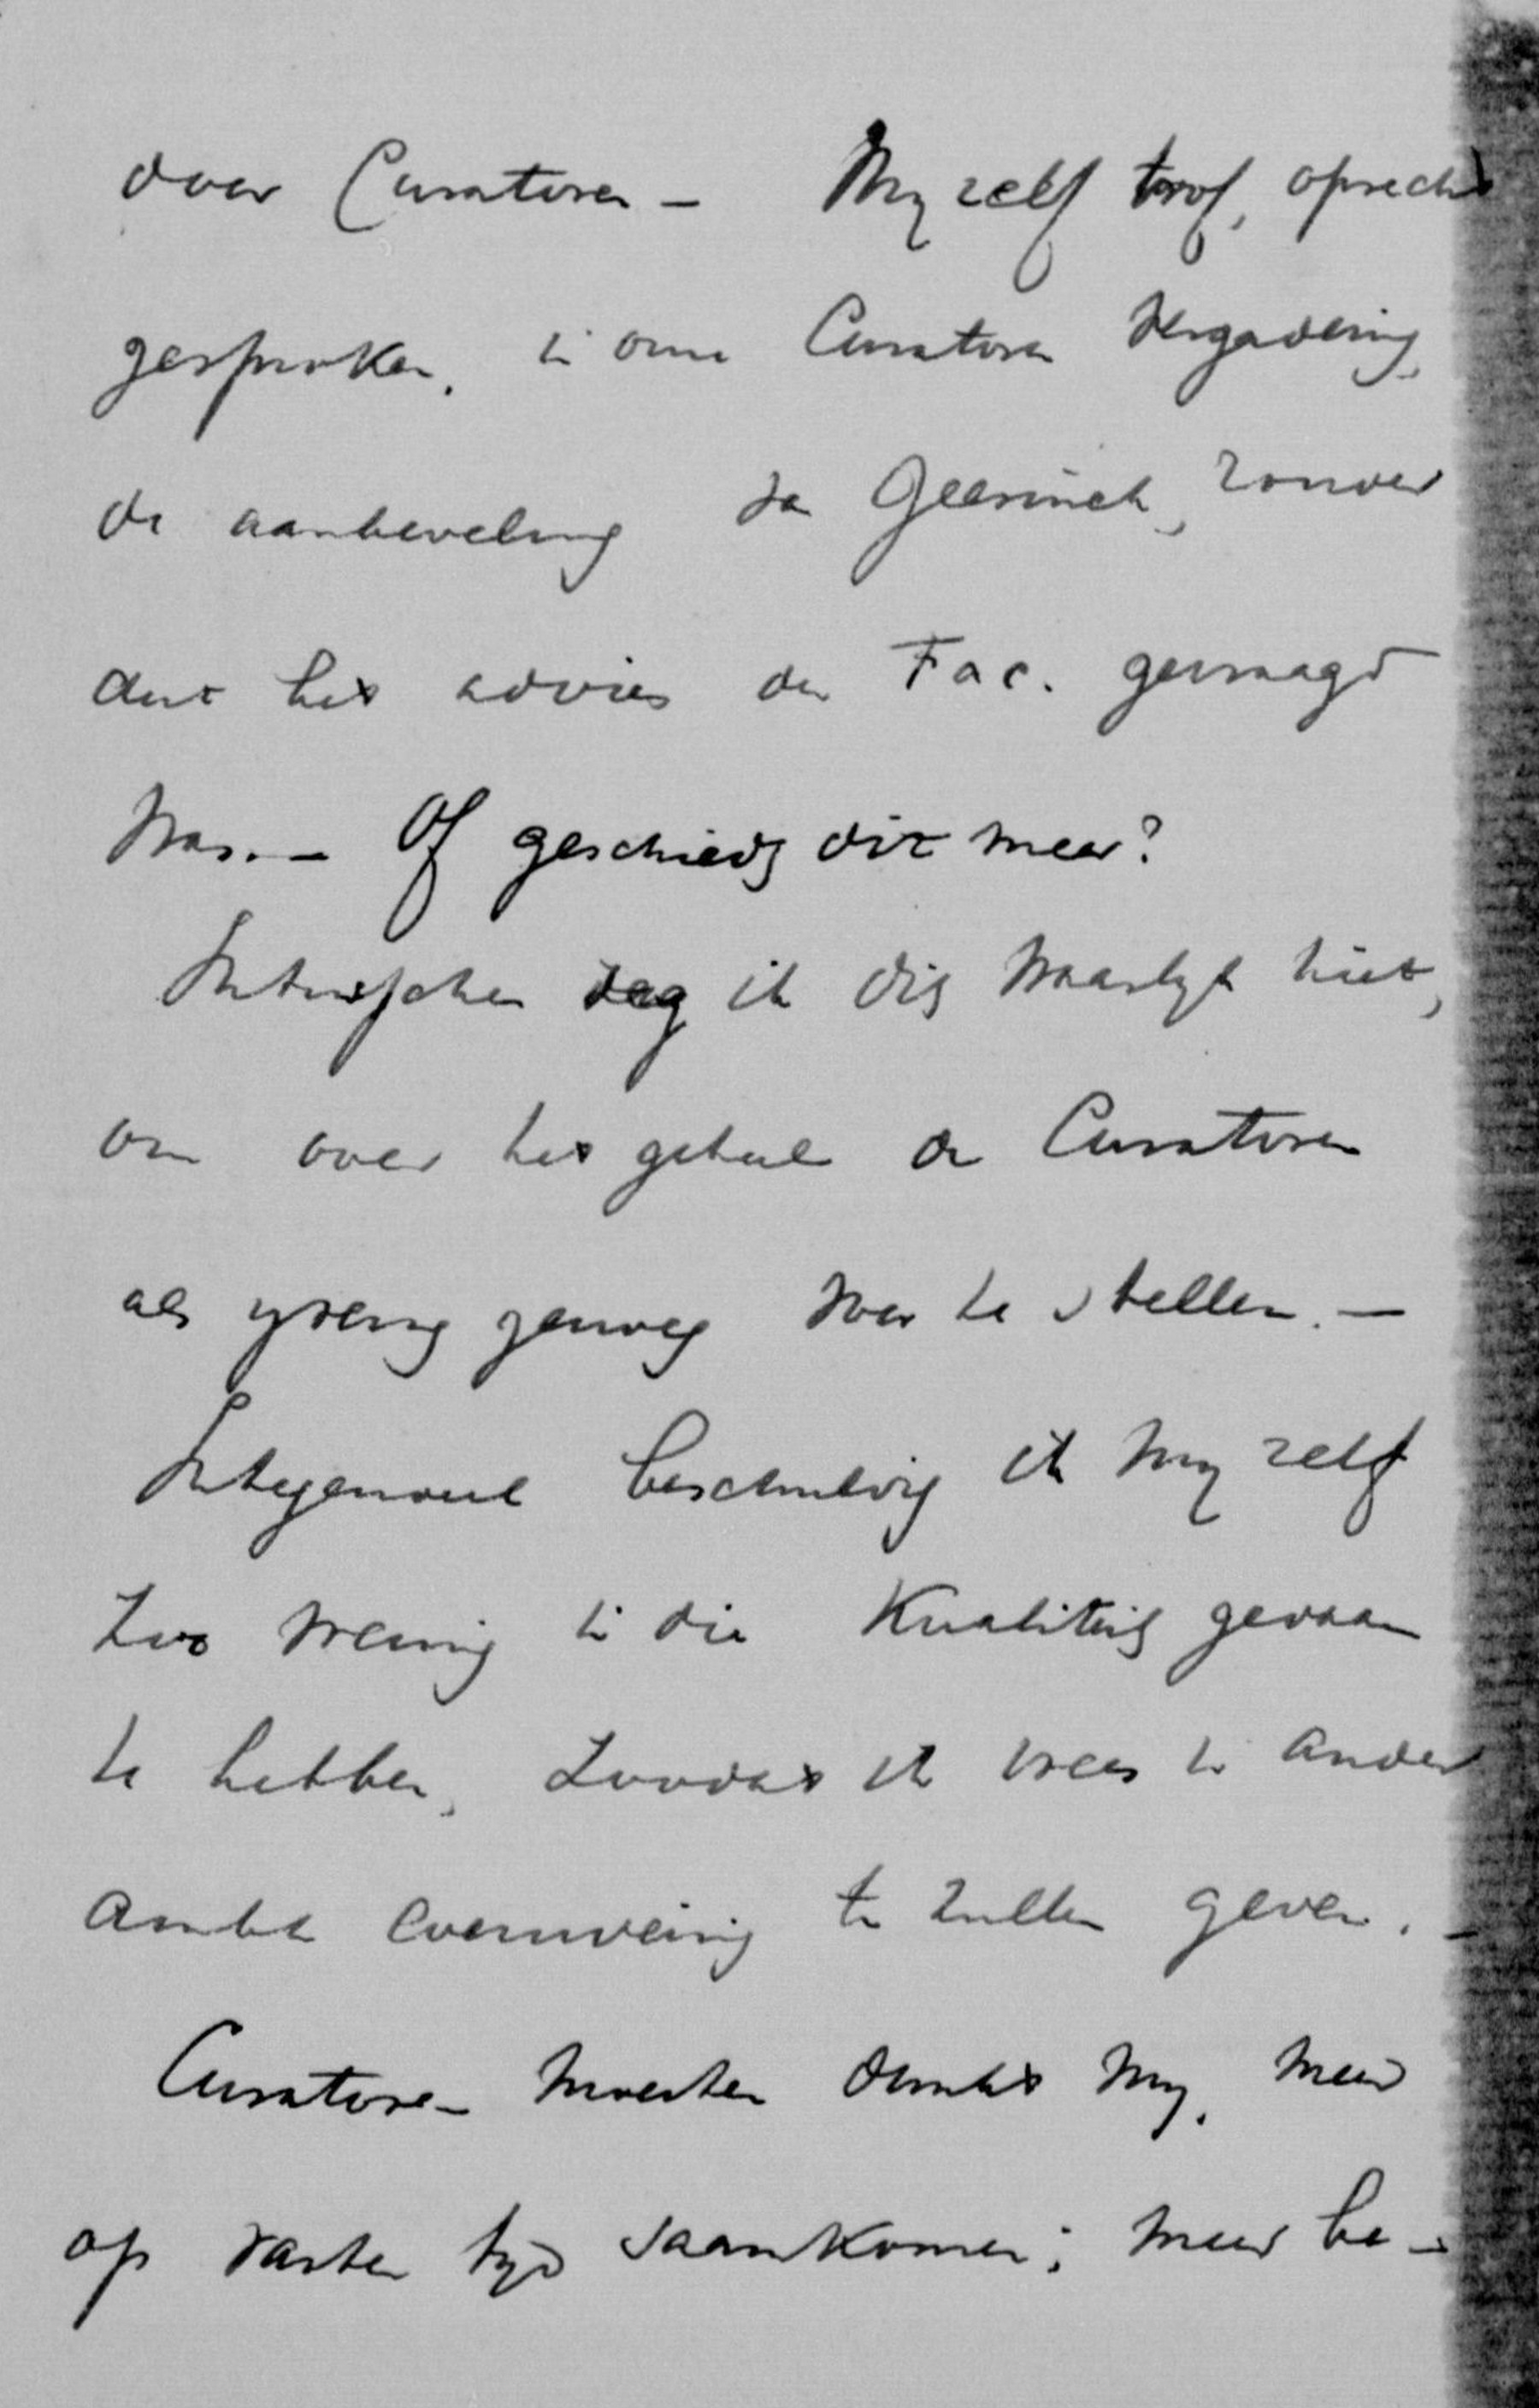 door Curatoren – My zelf trof, oprecht
gesproken, in onze Curatoren Vergadering,
de aanbeveling van Geesinck, zonder
dat het advies der Fac. gevraagd
was. – Of geschiedt dit meer?
Intusschen zeg ik dit waarlyk niet,
om over het geheel de Curatoren
als yverig genoeg voor te stellen. –
Integendeel beschuldig ik my zelf
zoo weinig in die Kwaliteit gedaan
te hebben, zoodat ik vrees in ander
ambt evenweinig te zullen geven. –
Curatoren moesten dunkt my, meer
op vaste tyd saamkomen; meer be-